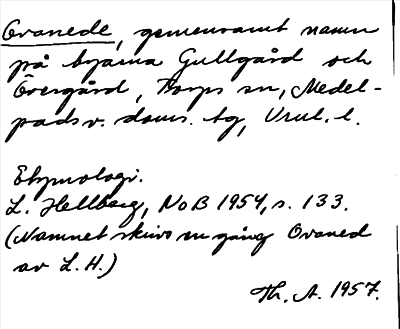 Ovanede, gemensamt namn
på byarna Gullgård och
Övergård, Torps sn, Medel-
pads v. doms. tg, Vnrl. l.
Etymologi.
L. Hellberg, NoB 1954, s. 133.
(Namnet skivs en gång Ovaned
av L. H.)
Th. A. 1957.